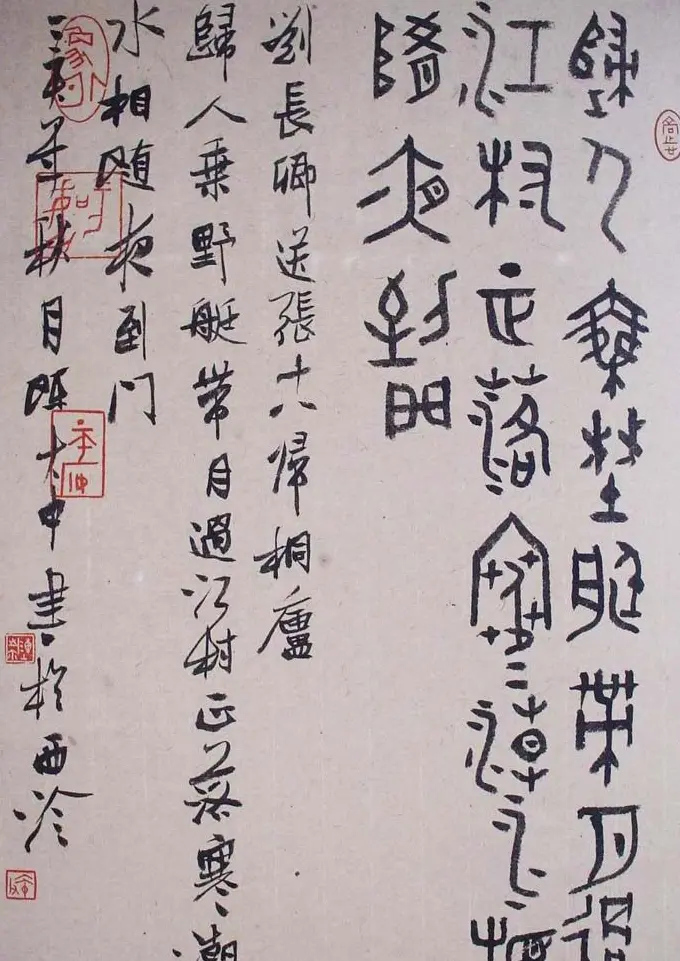 歸人乘野艇帶月過
江村正落寒潮水相
隨夜到門
劉長卿送張十八帰桐廬
歸人乗野艇帶月過江村正落寒潮
水相随夜到门
年秋月陳大中書於西泠